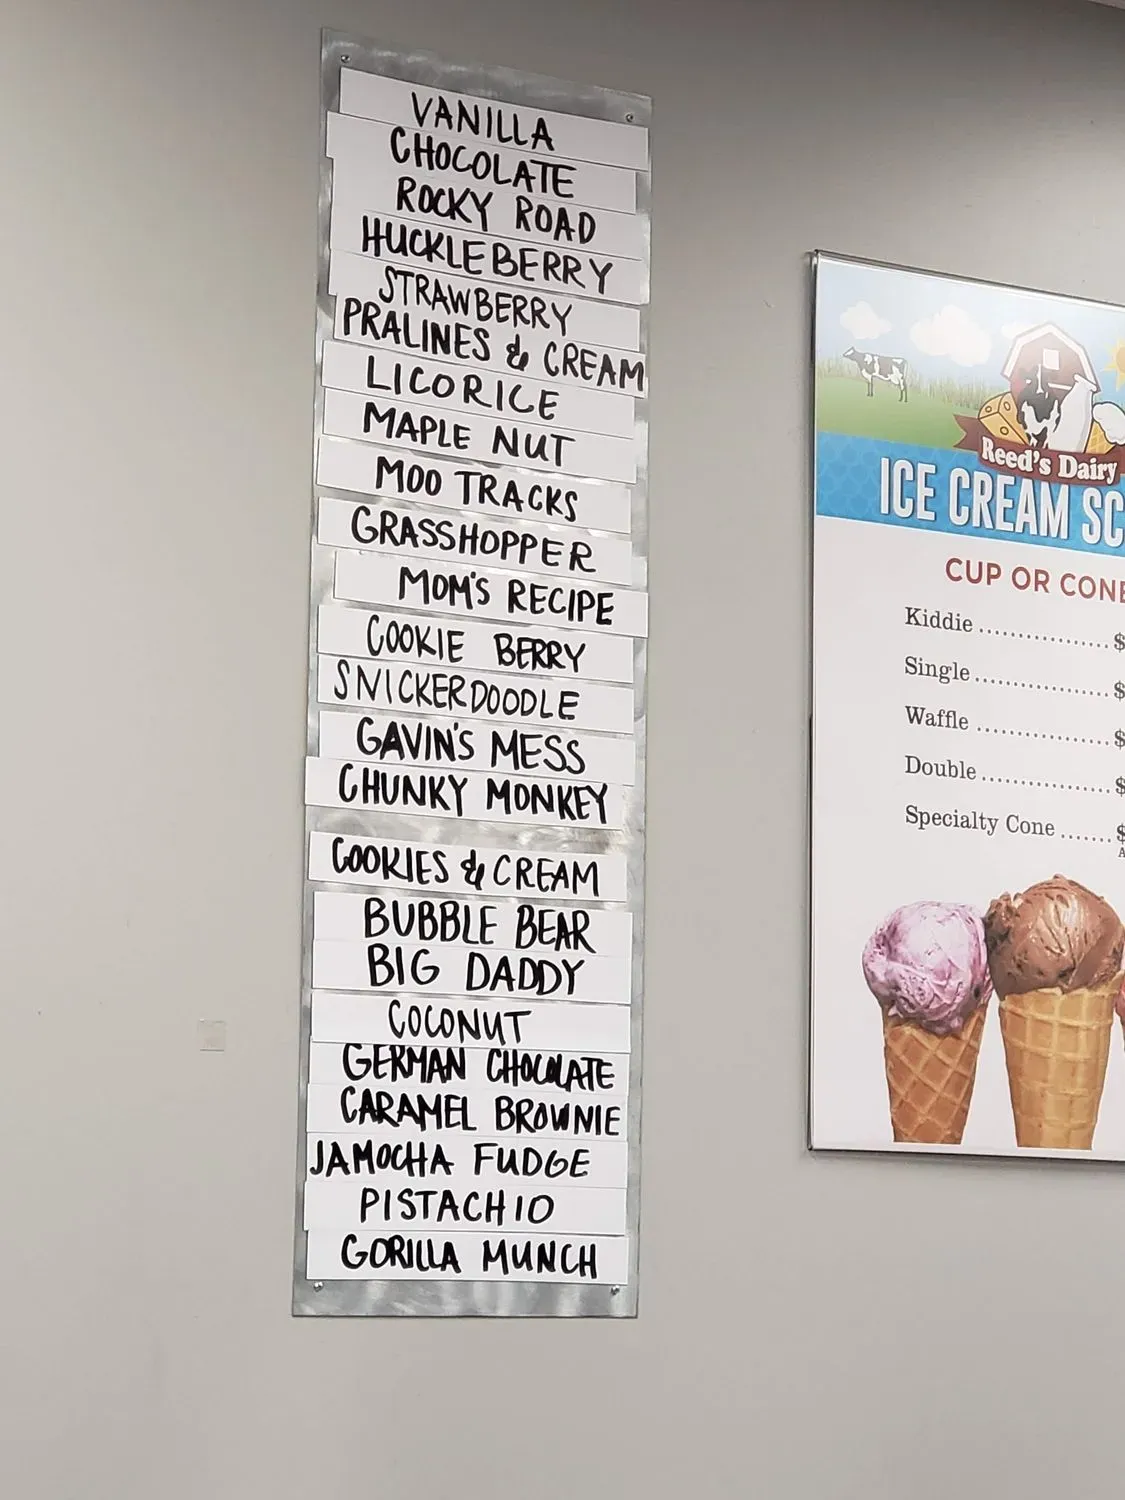 VANILLA
CHOCOLATE
ROCKY ROAD
HUCKLEBERRY
STRAWBERRY
PRALINES & CREAM
LICORICE
MAPLE NUT
MOO TRACKS
GRASSHOPPER
MOM'S RECIPE
COOKIE BERRY
SNICKERDOODLE
GAVIN'S MESS
CHUNKY MONKEY
COOKIES & CREAM
BUBBLE BEAR
BIG DADDY
COCONUT
GERMAN CHOCOLATE
CARAMEL BROWNIE
JAMOCHA FUDGE
PISTACHIO
GORILLA MUNCH
Reed's Dairy
ICE CREAM SC
CUP OR CONE
Kiddie ................. $
Single ................. $
Waffle ................. $
Double ................. $
Specialty Cone ....... $
A